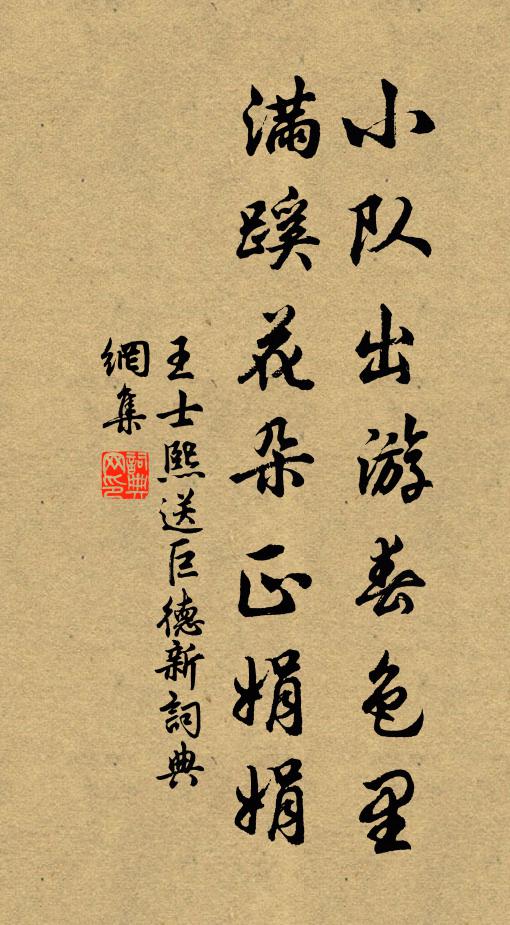 小队出游春色里
满蹊花朵正娟娟
王士熙送巨德新詞典
網集
詞典网印